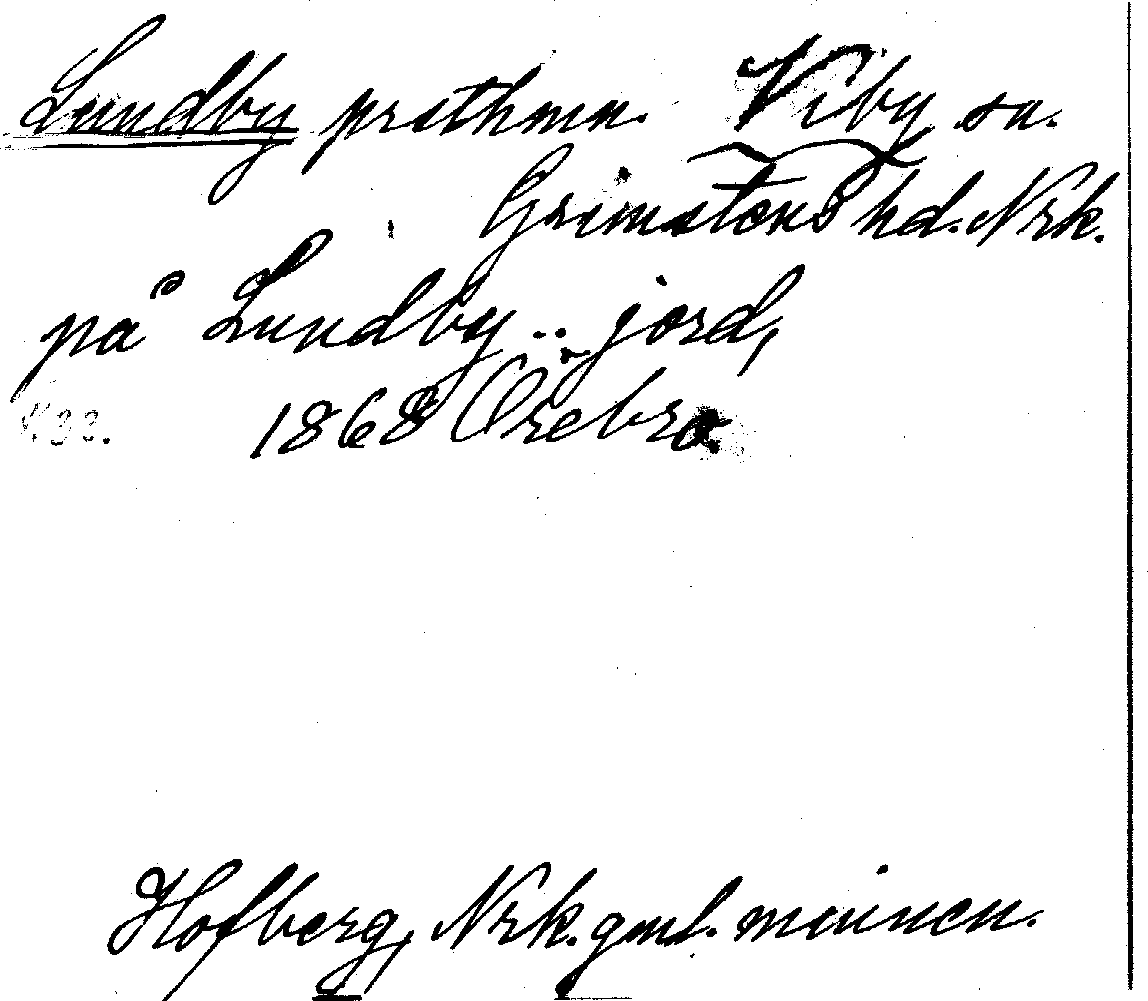 Lundby prsthmn. Viby sn.
Grimstens hd. Nrk.
på Lundby .. jord,
1868 Örebro.
Hofberg, Nrk. gml. minnen.